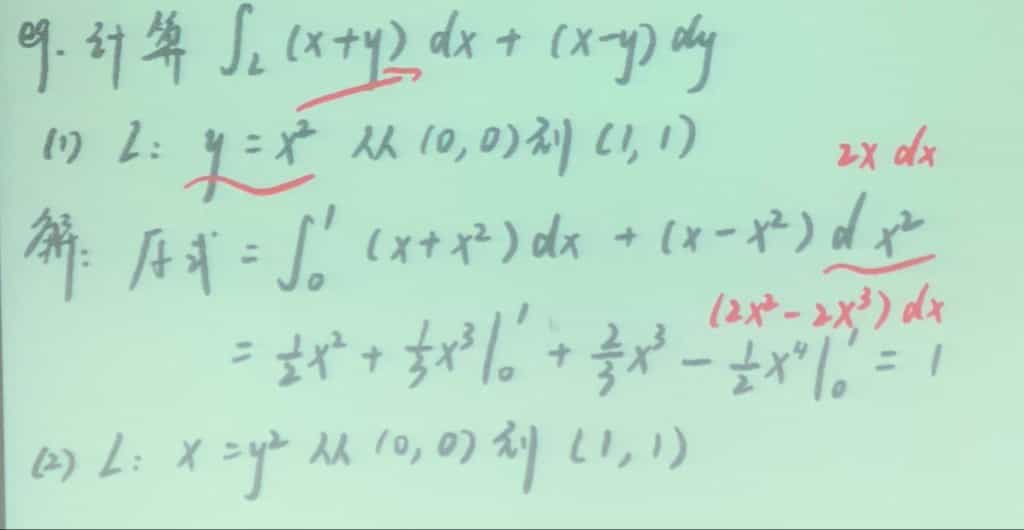 eg. 计算 ∫_L (x+y) dx + (x-y) dy
(1) L: y = x² 从 (0,0) 到 (1,1)
2x dx
解: 原式 = ∫₀¹ (x+x²) dx + (x-x²) d x²
(2x² - 2x³) dx
= ½x² + ⅓x³|₀¹ + ⅔x³ - ½x⁴|₀¹ = 1
(2) L: x = y² 从 (0,0) 到 (1,1)